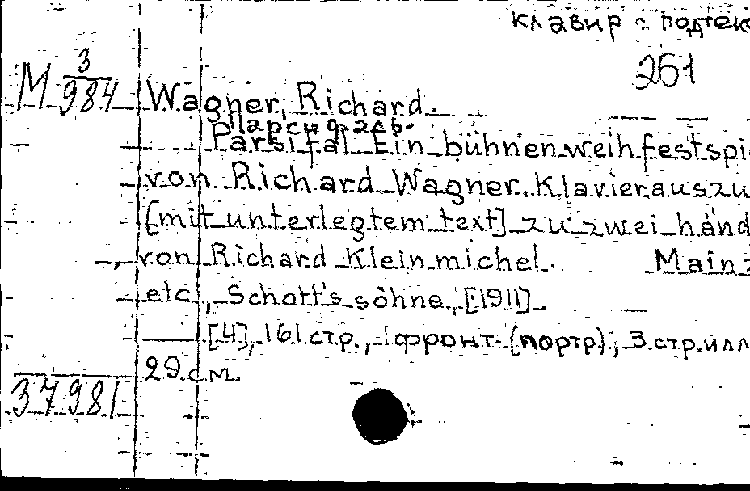 клавир с подтек
261
М 3/984
Wagner, Richard.
Парсифаль.
Parsifal Ein bühnenweihfestspi
von Richard Wagner. Klavierauszu
[mit unterlegtem text] zu zwei händ
von Richard Kleinmichel. Mainz
etc., Schott's söhne, [1911]
[4], 161 стр., фронт. (портр), 3 стр. илл
29 см.
37981